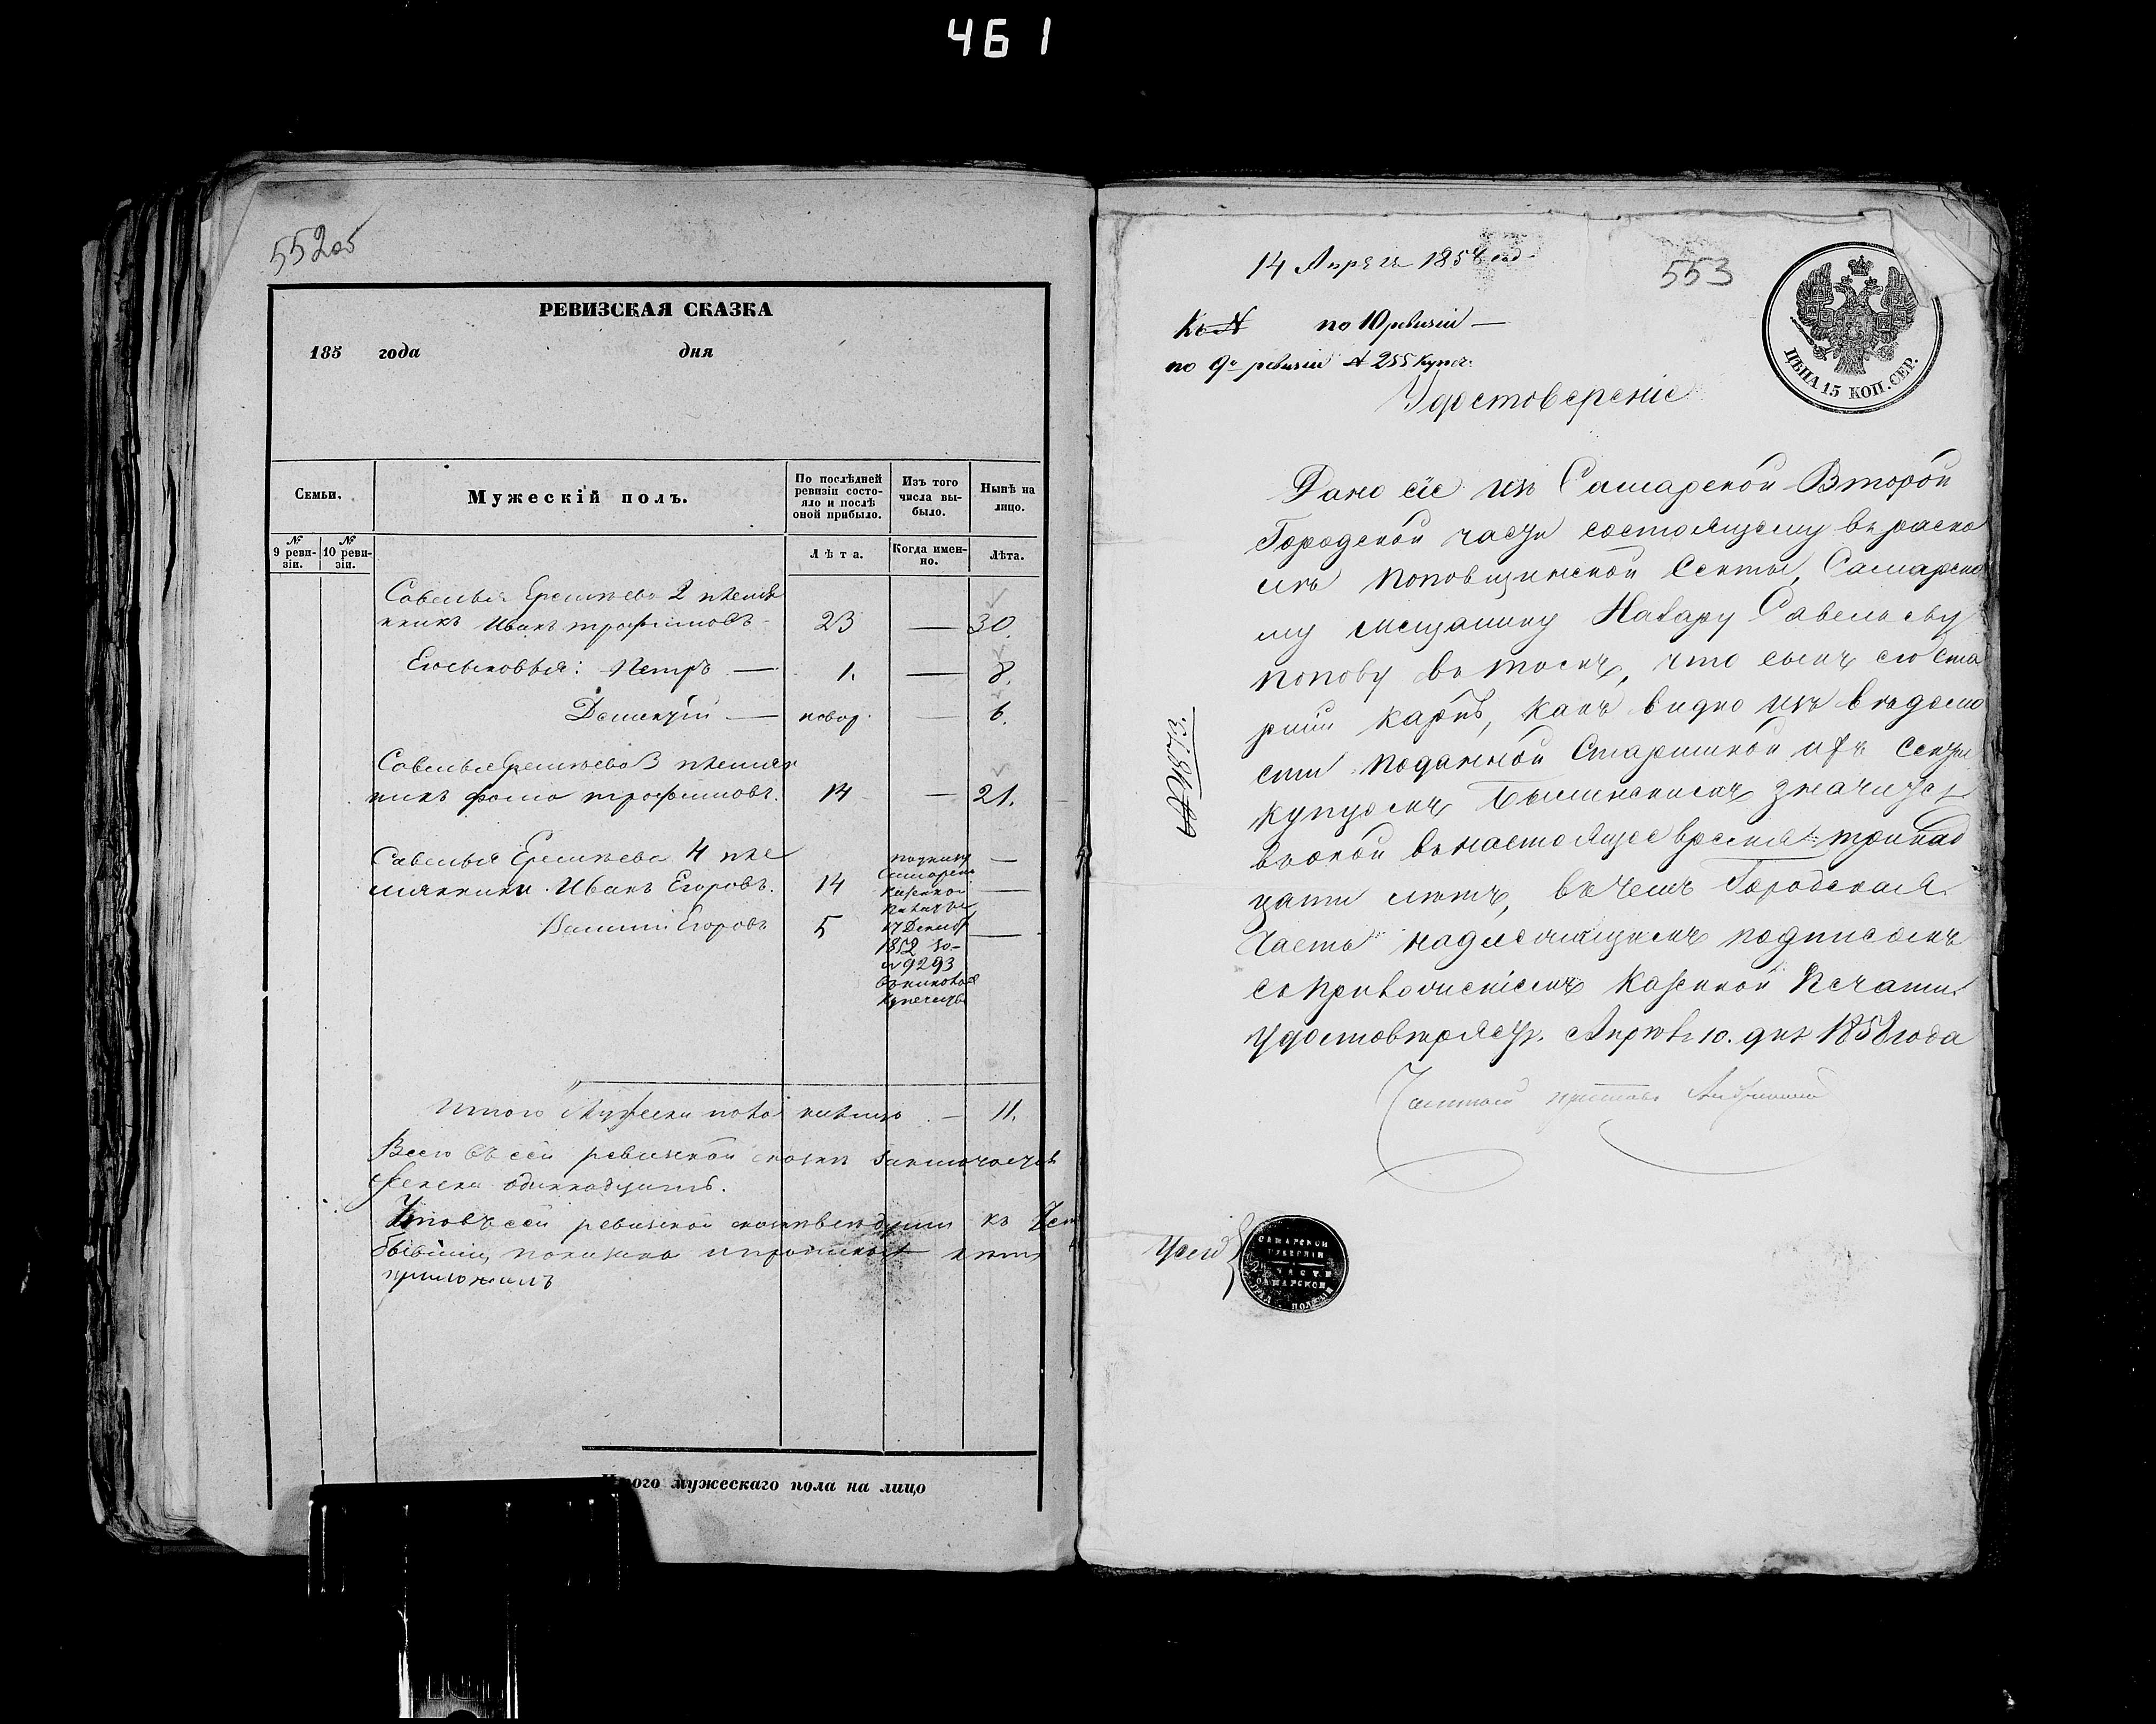 461
552об
РЕВИЗСКАЯ СКАЗКА
185 года дня
Семьи.
Мужескій полъ.
По послѣдней ревизіи состояло и послѣ оной прибыло.
Изъ того числа выбыло.
Нынѣ на лицо.
№ 9 ревизіи.
№ 10 ревизіи.
Лѣта.
Когда именно.
Лѣта.
Савелья Еремѣева 2 племя
нникъ Иванъ Трофимовъ 23 — 30.
Егосыновья: Петръ — 1. — 8.
Дементiй — новор. — 6.
Савелья Еремѣева 3 племян
никъ Фома Трофимовъ. 14 — 21.
Савелья Еремѣева 4 пле
мянники Иванъ Егоровъ. 14
Егоровъ 5
по указу
Самарской
Казенной
Палаты
17 Декабр
1852 го-
№ 9293
Купечество
Итого Мужеска пола налицо — 11.
Всего въ сей ревизской сказкѣ заключается
одиннадцать.
Что въ сей ревизской
приложилъ
Итого мужескаго пола на лицо
14 Апрѣля 1858 год
553
Къ № по 10 ревизіи —
по 9й ревизіи № 255 купеч.
ЦѢНА 15 КОП. СЕР.
Удостовереніе
Дано сіе изъ Самарской Второй
Городской части состоящему въ раско
лѣ поповщинской Секты, Самарско
му мещанину Назару Савельеву
Попову въ томъ, что сынъ его Ста
ршiй Карпъ, какъ видно изъ вѣдомо
сти поданной Старшиной ихъ Секты
купцомъ значится
въ оной въ настоящее время тринад
цати лѣтъ, въ чемъ Городская
Часть надлежащимъ подписомъ
съ приложеніемъ Казенной Печати
удостовѣряетъ. Апрѣля 10. дня 1858 года
Частный приставъ
№ 1873
САМАРСКОЙ ГУБЕРНIИ
ЧАСТИ
САМАРСКОЙ
ГРАД. ПОЛИЦIИ